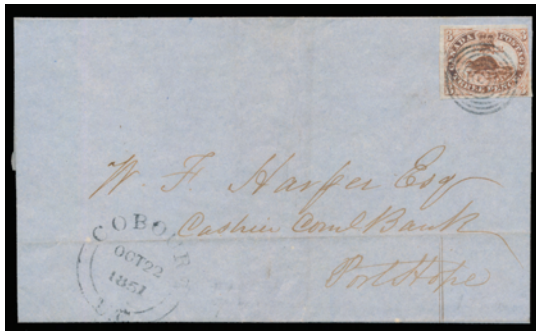 3 3
CANADA POSTAGE
THREE PENCE
W. F. Harper Esq
Cashier Coml Bank
Port Hope
COBOURG
OCT 22
1851